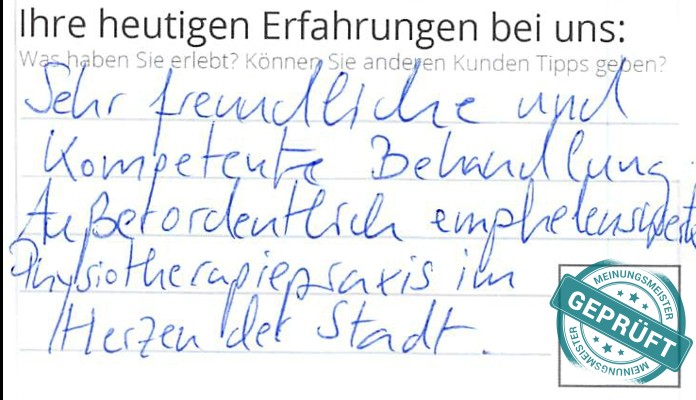 Ihre heutigen Erfahrungen bei uns:
Was haben Sie erlebt? Können Sie anderen Kunden Tipps geben?
Sehr freundliche und
Kompetente Behandlung.
Außerordentlich emphelenswerte
Physiotherapiepraxis im
Herzen der Stadt.
MEINUNGSMEISTER
GEPRÜFT
MEINUNGSMEISTER